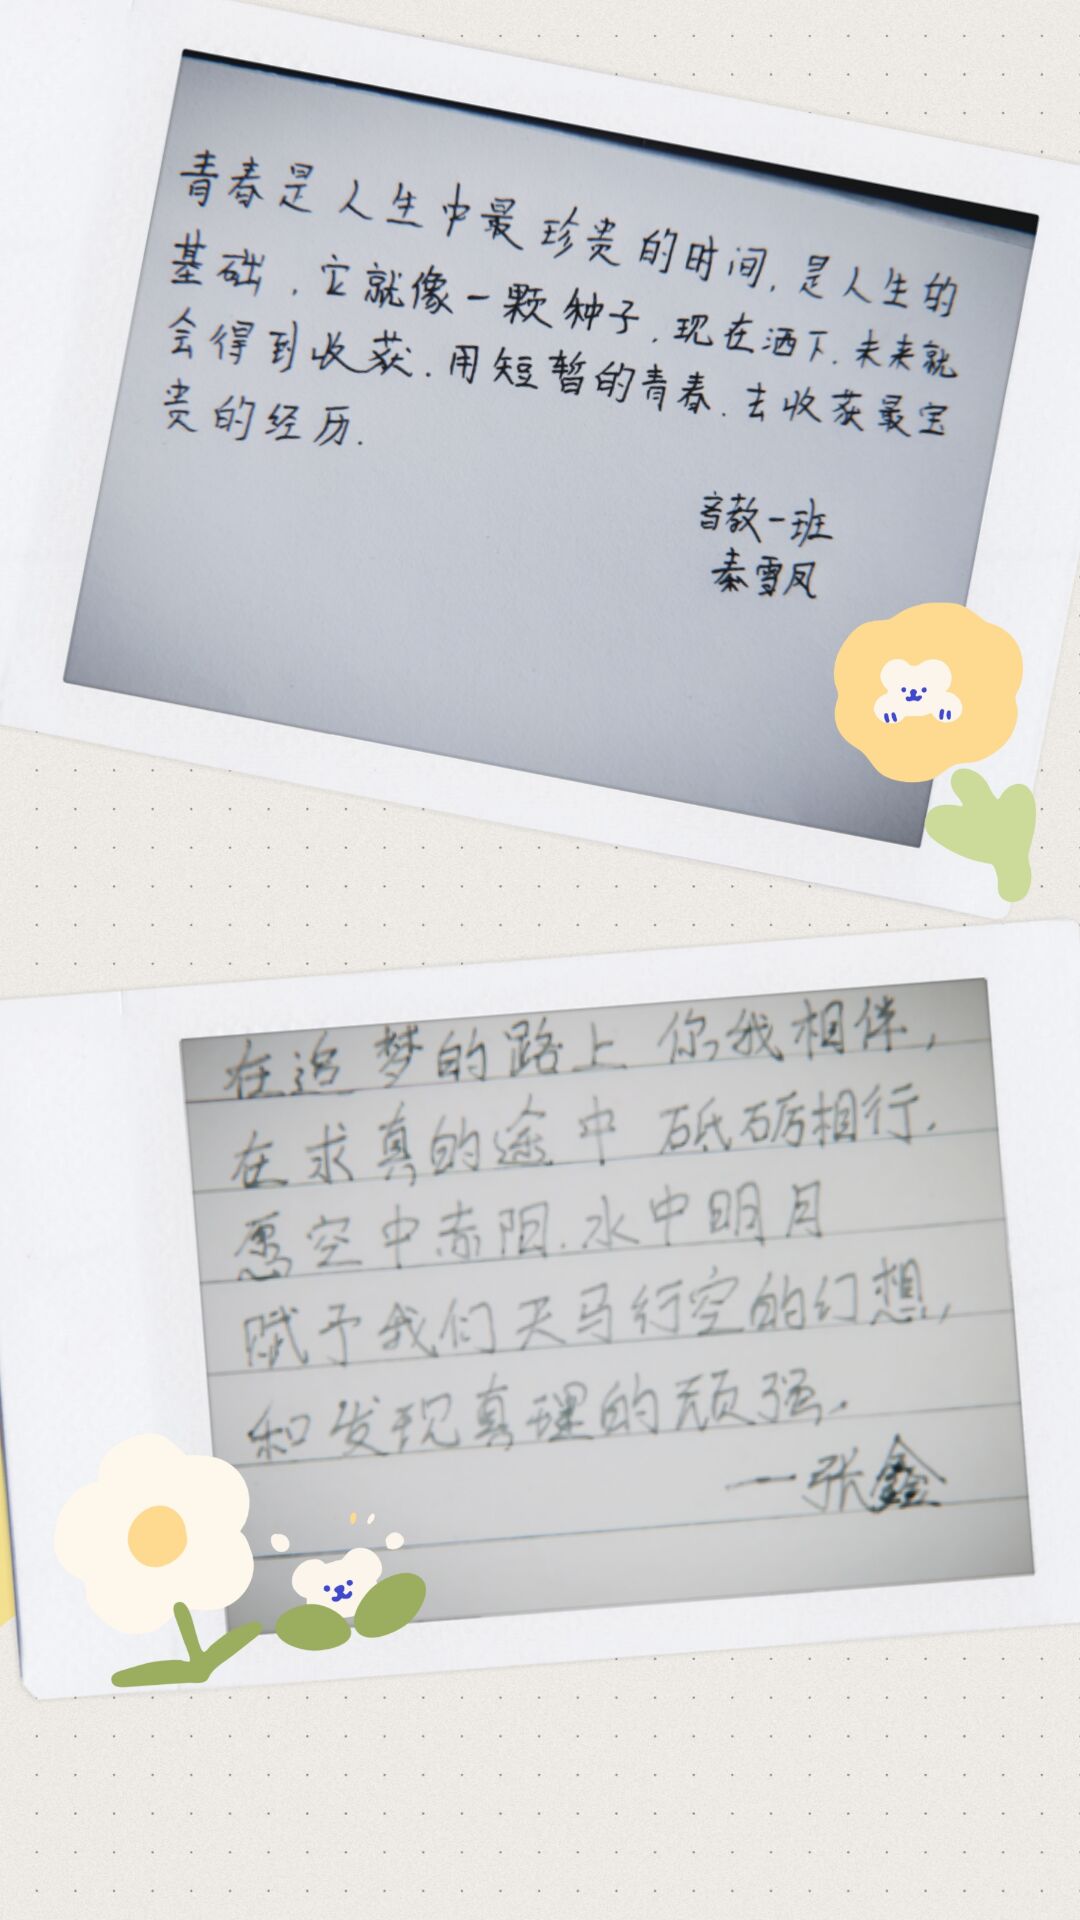 青春是人生中最珍贵的时间,是人生的
基础,它就像一颗种子,现在洒下,未来就
会得到收获.用短暂的青春,去收获最宝
贵的经历.
音教一班
秦雪凤
在追梦的路上 你我相伴,
在求真的途中 砥砺相行.
愿空中赤阳.水中明月
赋予我们天马行空的幻想,
和发现真理的顽强.
一张鑫